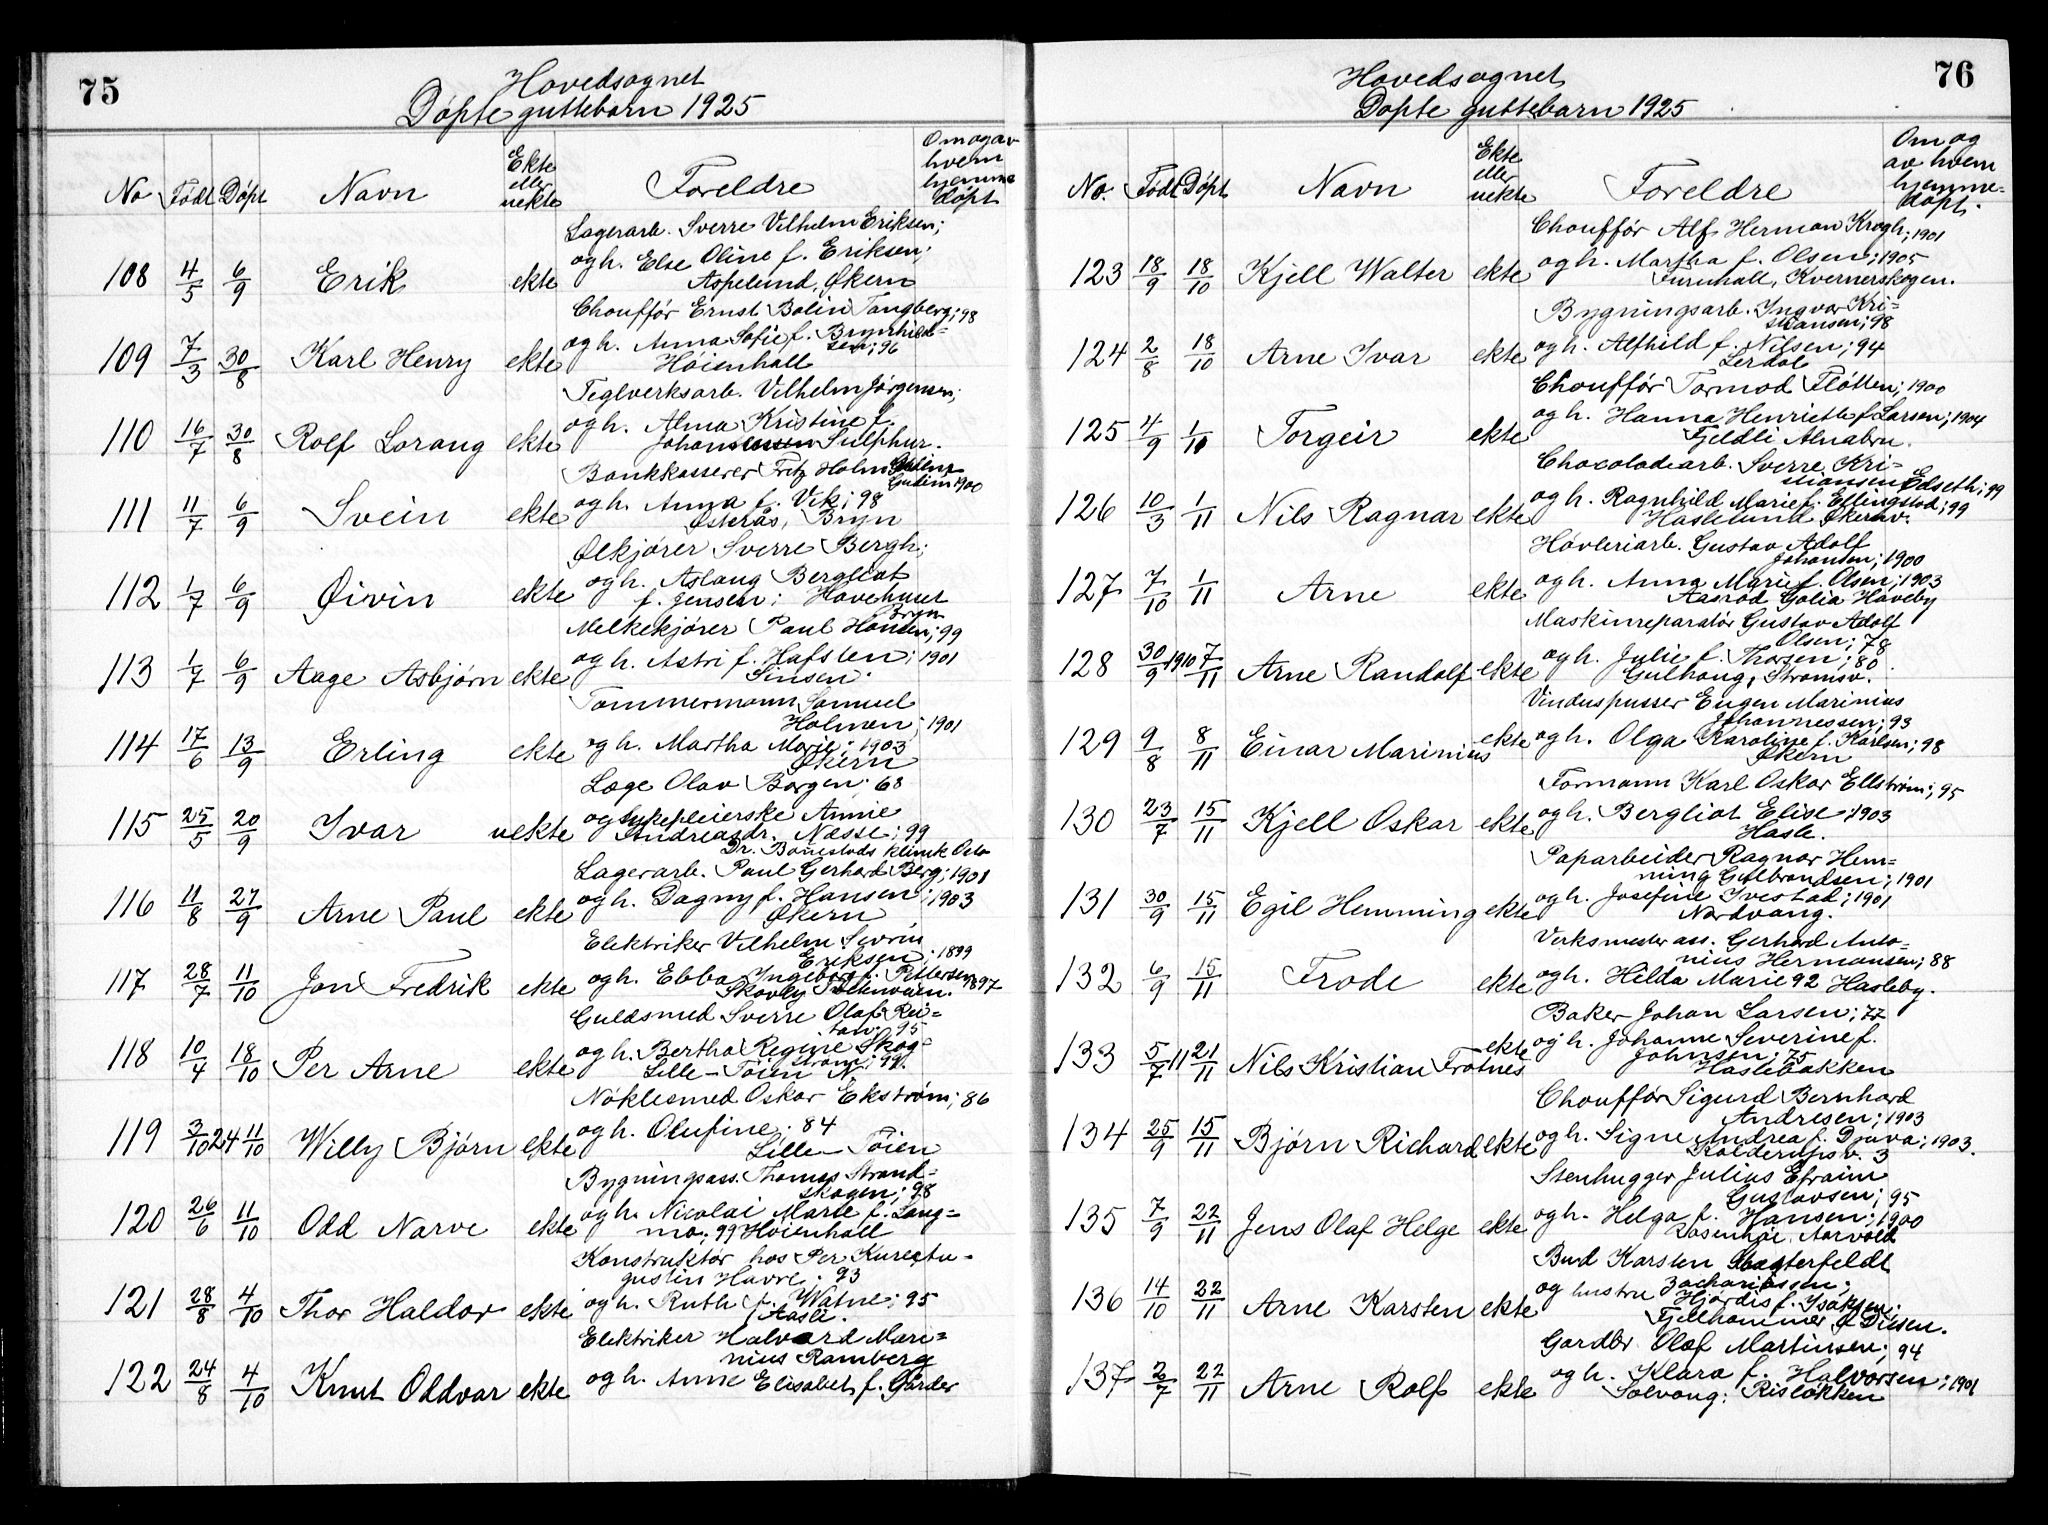 75
Hovedsognet
Døpte guttebarn 1925
No Født Døpt Navn Ekte eller uekte Foreldre Om og av hvem hjemmedøpt
Lagerarb. Sverre Vilhelm Eriksen;
108 4/5 6/9 Erik ekte og h. Else Oline f. Eriksen;
Aspelund, Økern
Chouffør Ernst Bolin Tangberg; 98
109 7/3 30/8 Karl Henry ekte og h. Anna Sofie f. Brynhild=
sen; 96
Høienhall
Teglverksarb. Vilhelm Jørgensen;
110 16/7 30/8 Rolf Lorang ekte og h. Alma Kristine f.
Johannessen Sulphur.
Bankkasserer Fritz Holm
Gudim 1900
111 11/7 6/9 Svein ekte og h. Anna f. Vik; 98
Østerås, Bryn
Ølkjører Sverre Bergh;
112 1/7 6/9 Øivin ekte og h. Aslaug Bergliot
f. Jensen; Havehuset
Bryn
Melkekjører Paul Hansen; 99
113 1/7 6/9 Aage Asbjørn ekte og h. Astri f. Hafsten; 1901
Sinsen.
Tømmermann Samuel
Holmen; 1901
114 17/6 13/9 Erling ekte og h. Martha Marie; 1903
Økern
Læge Olav Borgen; 68
115 25/5 20/9 Ivar uekte og sykepleierske Annie
Andreasdr. Næsse; 99
Dr. Bonestads klinik Oslo
Lagerarb. Paul Gerhard Berg; 1901
116 11/8 27/9 Arne Paul ekte og h. Dagny f. Hansen; 1903
Økern
Elektriker Vilhelm Sevrin
Eriksen; 1899
117 28/7 11/10 Jon Fredrik ekte og h. Ebba Ingeborg f. Pettersen 1897
Skovly
Guldsmed Sverre Olaf Rei=
tan; 95
118 10/4 18/10 Per Arne ekte og h. Bertha Regine Skog=
strøm; 99.
Lille-Tøien
Nøklesmed Oskar Ekstrøm; 86
119 3/10 24 11/10 Willy Bjørn ekte og h. Olufine; 84
Lille-Tøien
Bygningsass. Thomas Strand=
skogen; 98
120 26/6 11/10 Odd Narve ekte og h. Nicolai Marie f. Lang=
mo; 99 Høienhall
Konstruktør hos Per Kure
gustin Havre; 93
121 28/8 4/10 Thor Haldor ekte og h. Ruth f. Watne; 95
Hasle.
Elektriker Halvard Mari=
nius Ramberg
122 24/8 4/10 Knut Oddvar ekte og h. Anne Elisabet f. Garder
76
Hovedsognet
Døpte guttebarn 1925
No. Født Døpt Navn Ekte eller uekte Foreldre Om og av hvem hjemme=døpt.
Chouffør Alf Herman Krogh; 1901
123 18/9 18/10 Kjell Walter ekte og h. Martha f. Olsen; 1905
Furuhall, Kvernerskogen.
Bygningsarb. Ingvar Kri=
stiansen; 98
124 2/8 18/10 Arne Ivar ekte og h. Alfhild f. Nilsen; 94
Lerdal
Chouffør Tormod Fløtten; 1900
125 4/9 1/11 Torgeir ekte og h. Hanna Henriette f. Larsen; 1904
Fjeldli Alnabru.
Chocoladearb. Sverre Kri=
stiansen Edseth; 99
126 10/3 1/11 Nils Ragnar ekte og h. Ragnhild Marie f. Ellingstad; 99
Haslelund Økernv.
Høvleriarb. Gustav Adolf
Johansen; 1900
127 7/10 1/11 Arne ekte og h. Anna Marie f. Olsen; 1903
Aasrød Golia Haveby
Maskinreparatør Gustav Adolf
Olsen; 78
128 30/9 1910 7/11 Arne Randolf ekte og h. Julie f. Thorsen; 80
Gulhaug, Strømsv.
Vinduspusser Eugen Marinius
Johannessen; 93
129 9/8 8/11 Einar Marinius ekte og h. Olga Karoline f. Karlsen; 98
Økern
Formann Karl Oskar Ellstrøm; 95
130 23/7 15/11 Kjell Oskar ekte og h. Bergliot Elise 1903
Hasle.
Paparbeider Ragnar Hem=
ming Gulbrandsen; 1901
131 30/9 15/11 Egil Hemming ekte og h. Josefine Ivestad; 1901
Nordvang.
Verksmester ass. Gerhard Anto=
nius Hermansen; 88
132 6/9 15/11 Frode ekte og h. Hilda Marie 92 Hasleby.
Baker Johan Larsen; 77
133 5/7 11 21/11 Nils Kristian Frøtnes ekte og h. Johanne Severine f.
Johnsen; 75
Haslebakken
Chouffør Sigurd Bernhard
Andresen; 1903
134 25/9 15/11 Bjørn Richard ekte og h. Signe Andrea f. Djuva; 1903.
3
Stenhugger Julius Efraim
Gustavsen; 95
135 7/9 22/11 Jens Olaf Helge ekte og h. Helga f. Hansen; 1900
Rosenhøi Aarvold
Bud Karsten
Zachariassen;
136 14/10 22/11 Arne Karsten ekte og hustru Hjørdis f. Isaksen;
Fjellhammer
Gardbr. Olaf Martinsen; 94
137 2/7 22/11 Arne Rolf ekte og h. Klara f. Halvorsen; 1901
Solvang. Risløkken